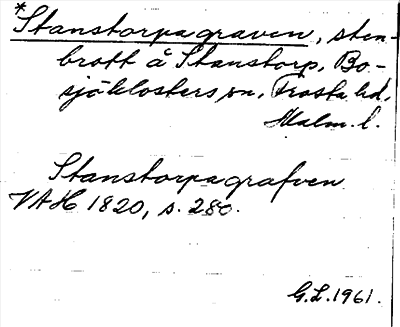 *Stanstorpagraven, sten-
brott å Stanstorp, Bo-
sjöklosters sn, Frosta hd,
Malm. l.
Stanstorpagrafven
VAH 1820, s. 280.
G.L. 1961.